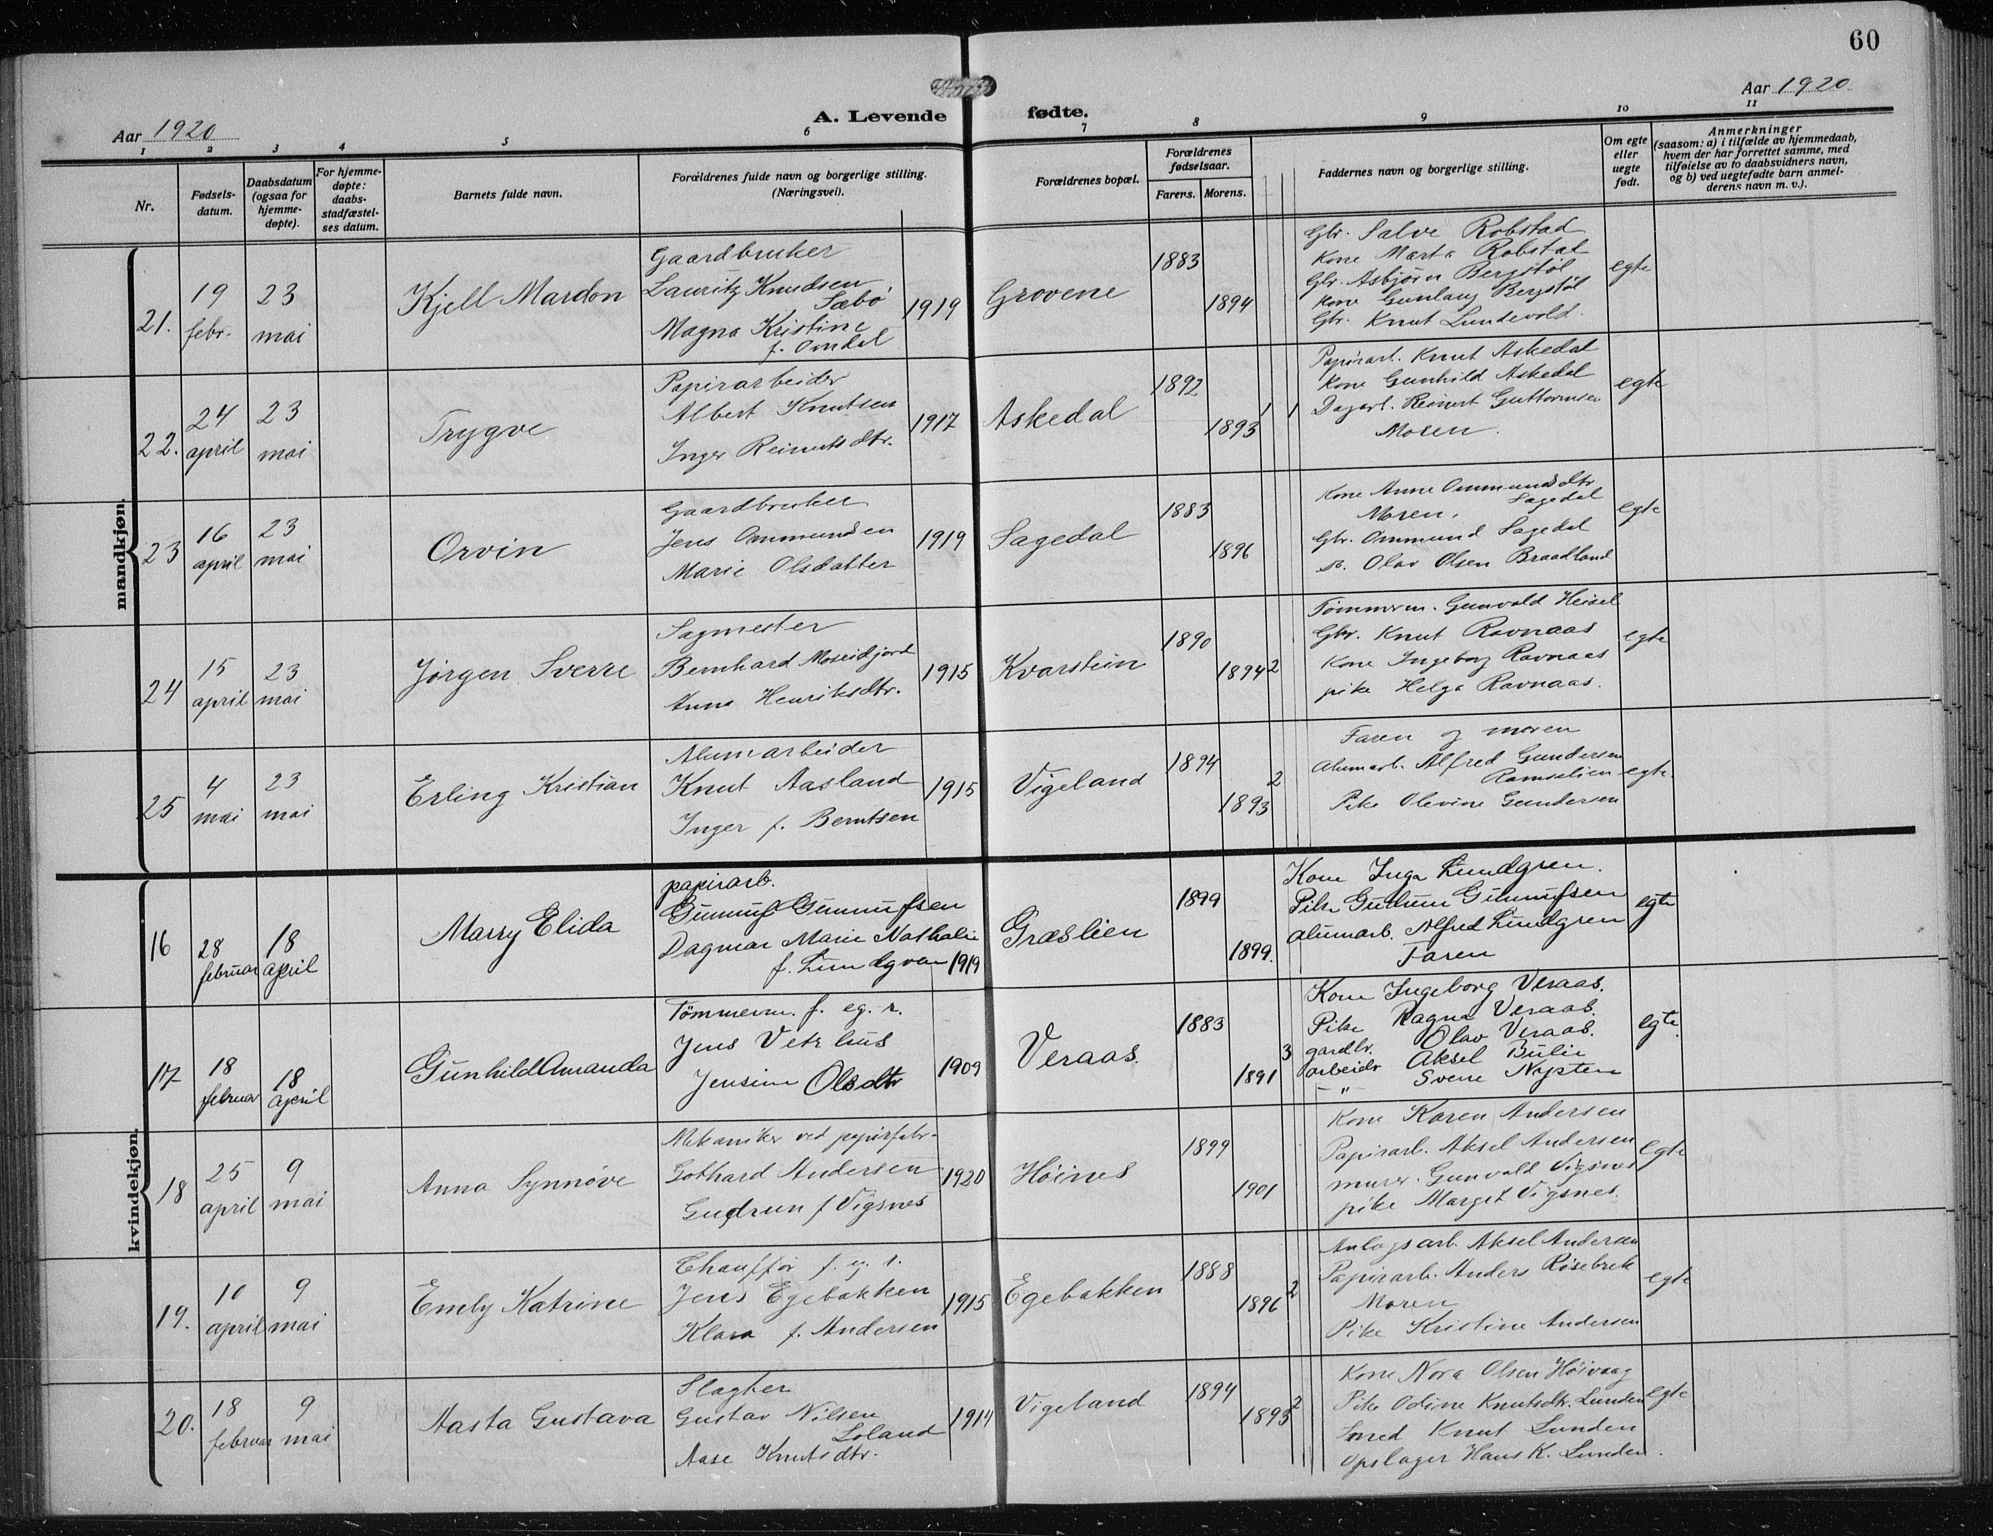 60
Aar 1920
A. Levende fødte.
Aar 1920
1 2 3 4 5 6 7 8 9 10 11
Nr.
Fødsels-
datum.
Daabsdatum
(ogsaa for
hjemme-
døpte).
For hjemme-
døpte:
daabs-
stadfæstel-
ses datum.
Barnets fulde navn.
Forældrenes fulde navn og borgerlige stilling.
(Næringsvei).
Forældrenes bopæl.
Forældrenes
fødselsaar.
Farens. Morens.
Faddernes navn og borgerlige stilling.
Om egte
eller
uegte
født.
Anmerkninger
(saasom: a) i tilfælde av hjemmedaab,
hvem der har forrettet samme, med
tilføielse av to daabsvidners navn,
og b) ved uegtefødte barn anmel-
derens navn m. v.).
mandkjøn.
21.
19
febr.
23
mai
Kjell Mardon
Gaardbruker
Lauritz Knudsen
Sæbø
Magna Kristine
f. Omdal
1919
Grovene
1883
1894
Gbr. Salve Robstad
Kone Marta Robstad
Gbr. Asbjørn Bergstøl
Kone Gunlaug Bergstøl
Gbr. Knut Lundevold.
egte
22.
24
april
23
mai
Trygve
Papirarbeider
Albert Knutsen
Inger Reinertsdtr.
1917
Askedal
1892
1893
1 1
Papirarb. Knut Askedal
Kone Gunhild Askedal
Dagarb. Reinert Guttormsen
Moren.
egte
23
16
april
23
mai
Orvin
Gaardbruker
Jens Ommundsen
Marie Olsdatter
1919
Sagedal
1883
1896
Kone Anne Ommundsdtr
Sagedal
Moren.
Gbr. Ommund Sagedal
Olav Olsen Braadland
egte
24
15
april
23
mai
Jørgen Sverre
Sagmester
Bernhard Moseidjord
Anna Henriksdtr.
1915
Kvarstein
1890
1894
2
Tømmerm. Gunvald Heisel
Gbr. Knut Ravnaas
Kone Ingeborg Ravnaas
pike Helga Ravnaas.
egte
25
4
mai
23
mai
Erling Kristian
Alumarbeider
Knut Aasland
Inger f. Berntsen
1915
Vigeland
1894
1893
2
Faren og moren
Alumarb. Alfred Gundersen
Ramselien
Pike Olevine Gundersen
egte
kvindekjøn.
16
28
februar
18
april
Marry Elida
papirarb.
Gunnuf Gunnufsen
Dagmar Marie Nathalie
f. Lundgren 1919
Græslien
1899
1899.
Kone Inga Lundgren.
Pike Gudrun Gunnufsen
alumarb. Alfred Lundgren
Faren
egte
17
18
februar
18
april
Gunhild Amanda
Tømmerm. f. eg. r.
Jens Vetrhus
Jensine Olsdtr
1909
Veraas.
1883
1891
3
Kone Ingeborg Veraas.
Pike Ragna Veraas.
gardbr. Olav Veraas.
arbeidr Aksel Bulie
— " — Svene Nysten
egte.
18
25
april
9
mai
Anna Synnøve
Mekaniker ved papirfabr.
Gothard Andersen
Gudrun f. Vigsnes
1920
Høines
1899
1901
Kone Karen Andersen
Papirarb. Aksel Andersen
murer. Gunvald Vigsnes
pike Marget Vigsnes.
egte
19.
10
april
9
mai
Emly Katrine
Chauffør f. eg. r.
Jens Egebakken
Klara f. Andersen
1915
Egebakken
1888
1896
2
Anlagsarb. Aksel Andersen
Papirarb. Anders Røsebrek
Moren
Pike Kristine Andersen
egte
20.
18
februar
9
mai
Aasta Gustava
Slagter
Gustav Nilsen
Loland
Aase Knutsdtr.
1914
Vigeland
1894
1893
2
Kone Nora Olsen Høivaag
Pike Odine Knutsdtr. Lunden
Smed Knut Lunden
Opslager Hans K. Lunden.
egte